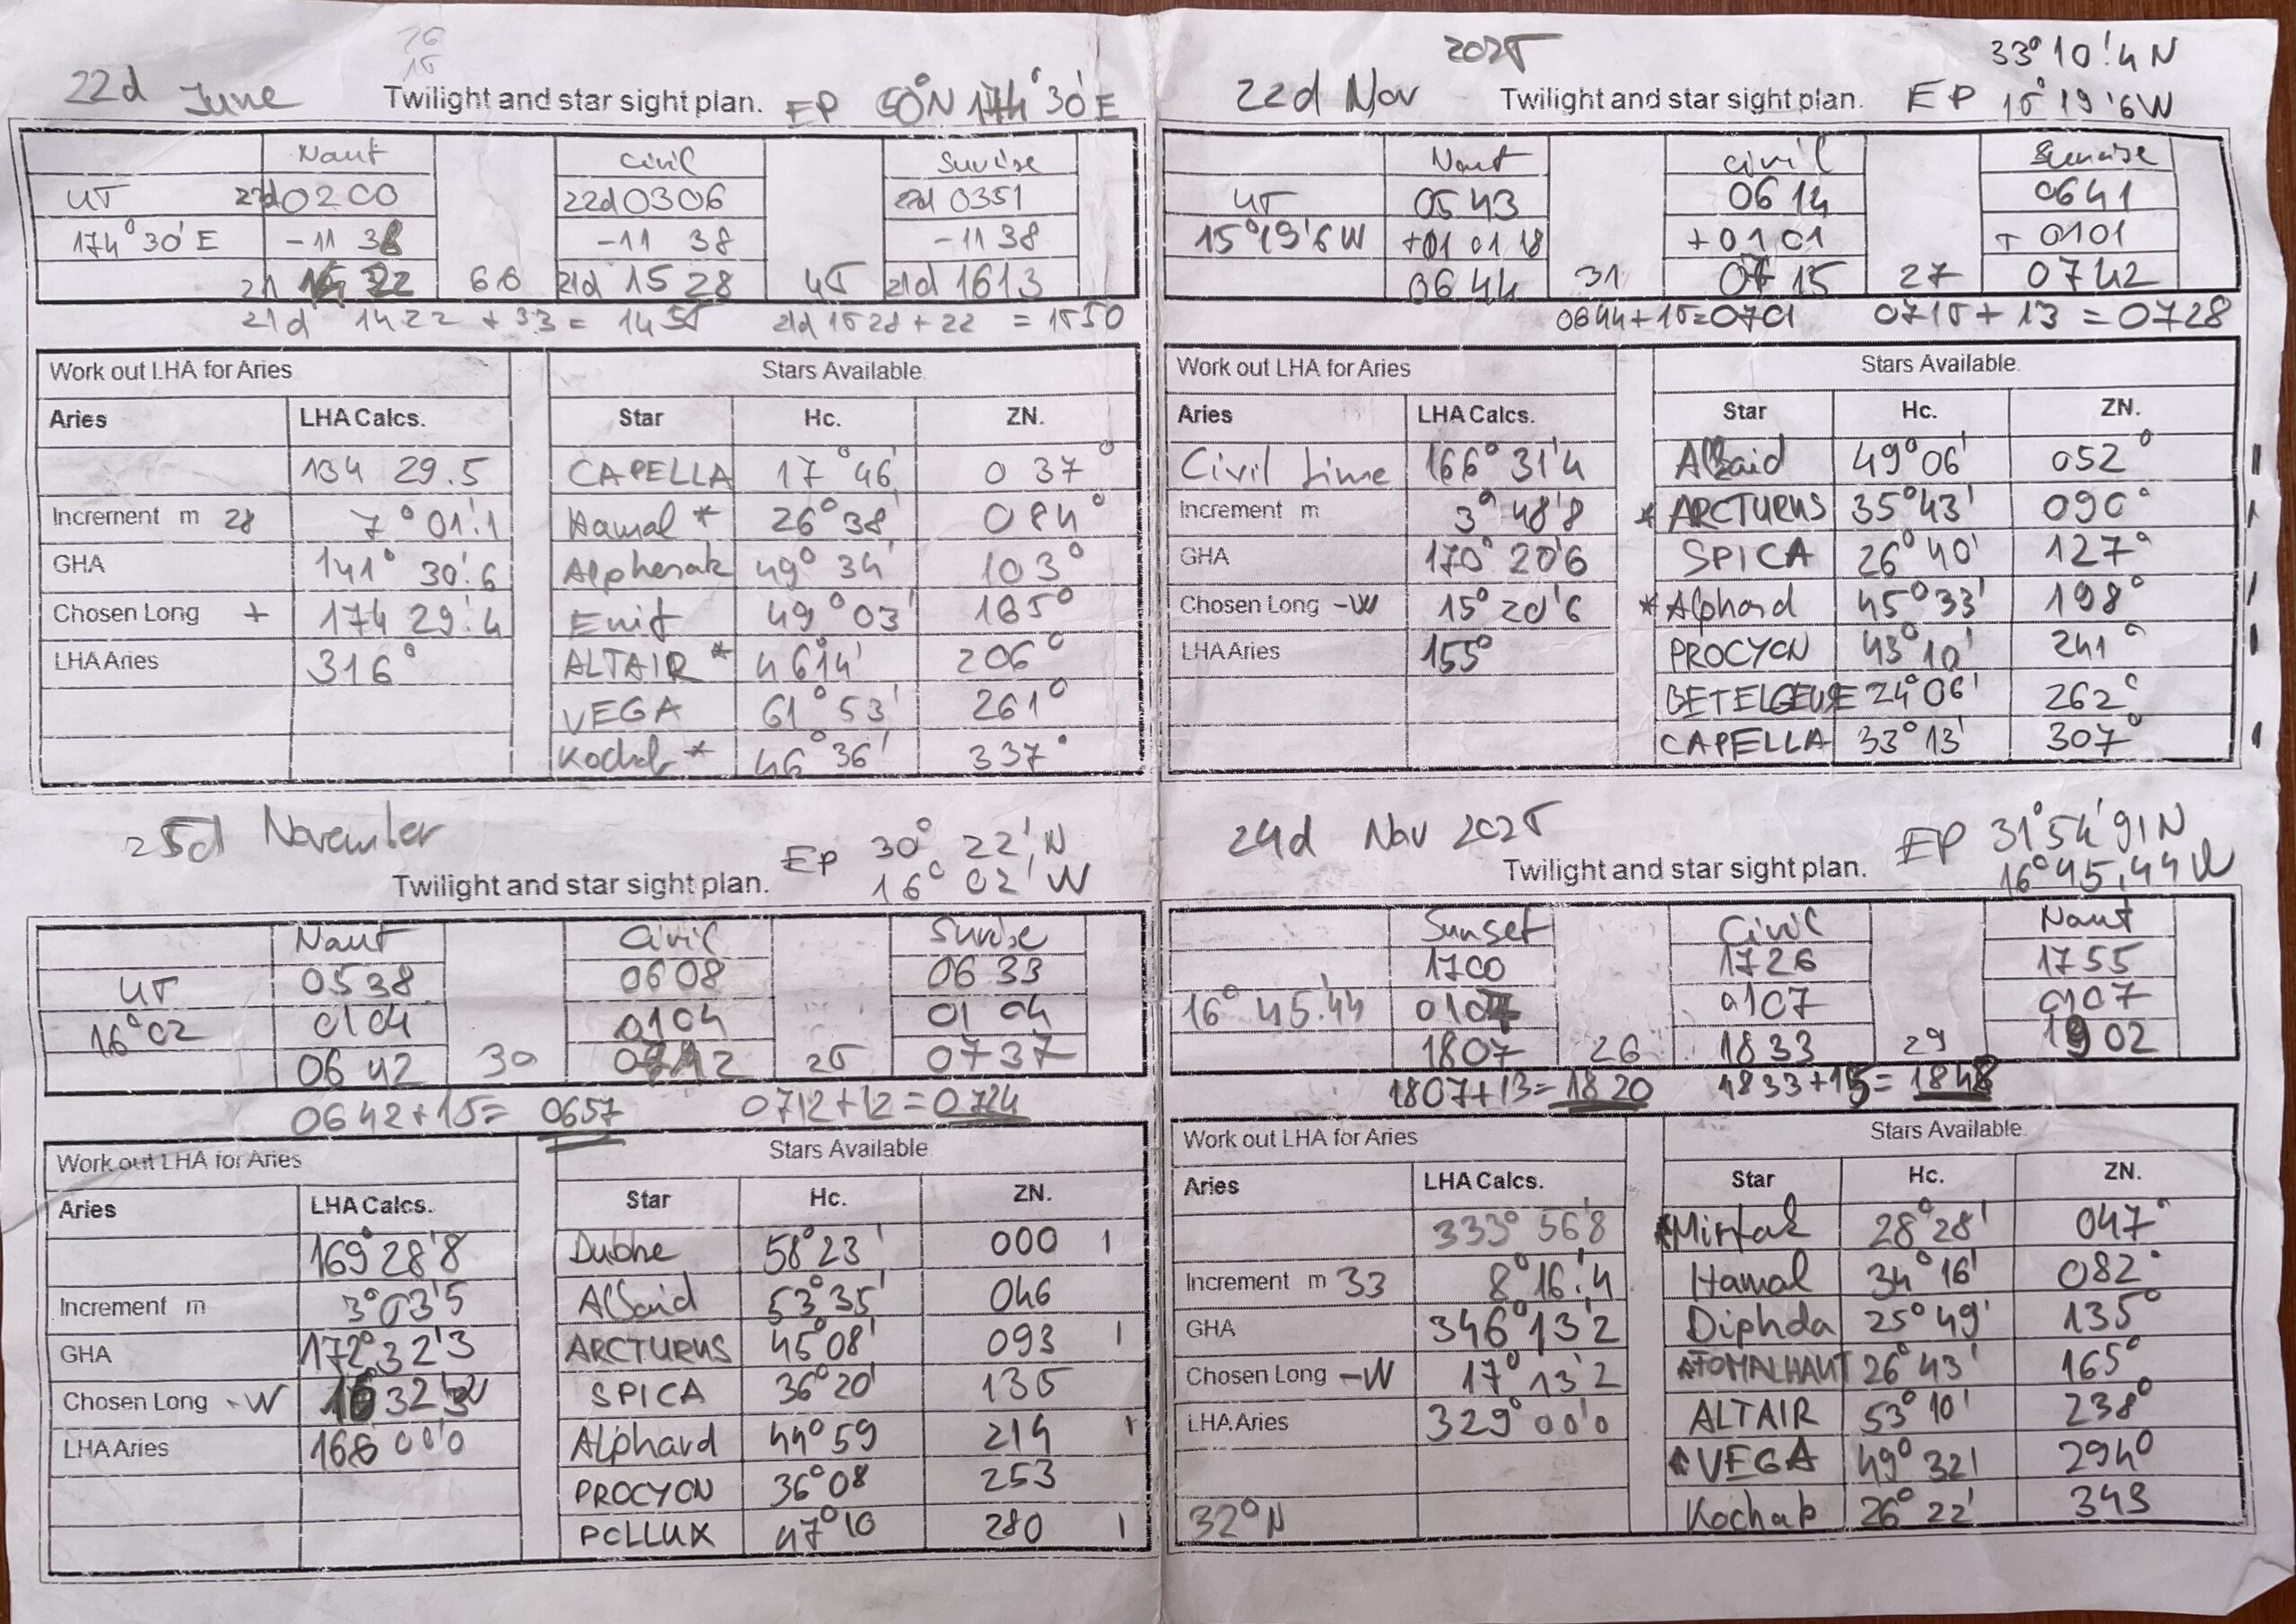 22d June
Twilight and star sight plan. EP 50°N 174°30'E
Naut Civil Sunrise
UT 22d0200 22d0306 22d 0351
174°30'E -11 38 -11 38 -11 38
21 22 66 21d 15 28 45 21d 1613
21d 1422 + 33 = 1455 21d 1528 + 22 = 1550
Work out LHA for Aries Stars Available
Aries LHA Calcs. Star Hc. ZN.
134 29.5 CAPELLA 17°46' 037°
Increment m 28 7°01!1 Hamal * 26°38' 084°
GHA 141° 30'.6 Alpheratz 49°34' 103°
Chosen Long + 174 29'.4 Enif 49°03' 165°
LHA Aries 316° ALTAIR * 46°14' 206°
VEGA 61°53' 261°
Kochab * 46°36' 337°
22d Nov 2025
Twilight and star sight plan. EP 33°10!4 N
15°19'6W
Naut Civil Sunrise
UT 0543 0614 0641
15°19'6W +01 01 18 +0101 + 0101
0644 31 0715 27 0742
0644+15=0701 0715+13=0728
Work out LHA for Aries Stars Available
Aries LHA Calcs. Star Hc. ZN.
Civil time 166°31'4 Alkaid 49°06' 052°
Increment m 3°48'8 * ARCTURUS 35°43' 090°
GHA 170°20'6 SPICA 26°40' 127°
Chosen Long -W 15°20'6 * Alphard 45°33' 198°
LHA Aries 155° PROCYON 43°10' 241°
BETELGEUSE 24°06' 262°
CAPELLA 33°13' 307°
25d November
Twilight and star sight plan. EP 30° 22' N
16° 02' W
Naut Civil Sunrise
UT 0538 0608 0633
16°02 0104 0104 0104
0642 30 0712 25 0737
0642+15= 0657 0712+12=0724
Work out LHA for Aries Stars Available
Aries LHA Calcs. Star Hc. ZN.
169°28'8 Dubhe 58°23' 000
Increment m 3°03'5 Alkaid 53°35' 046
GHA 172°32'3 ARCTURUS 45°08' 093
Chosen Long -W 16 32'3 SPICA 36°20' 135
LHA Aries 00'0 Alphard 44°59 214
PROCYON 36°08 253
POLLUX 47°10 280
24d Nov 2025
Twilight and star sight plan. EP 31°54'91N
16°45,44W
Sunset Civil Naut
1700 1726 1755
16°45.'44 0107 0107 0107
1807 26 1833 29 1902
1807+13=1820 1833+15=1848
Work out LHA for Aries Stars Available
Aries LHA Calcs. Star Hc. ZN.
333°56'8 *Mirfak 28°28' 047°
Increment m 33 8°16!4 Hamal 34°16' 082°
GHA 346°13'2 Diphda 25°49' 135°
Chosen Long -W 17°13'2 FOMALHAUT 26°43' 165°
LHA Aries 329°00'0 ALTAIR 53°10' 238°
VEGA 49°32' 294°
32°N Kochab 26°22' 343